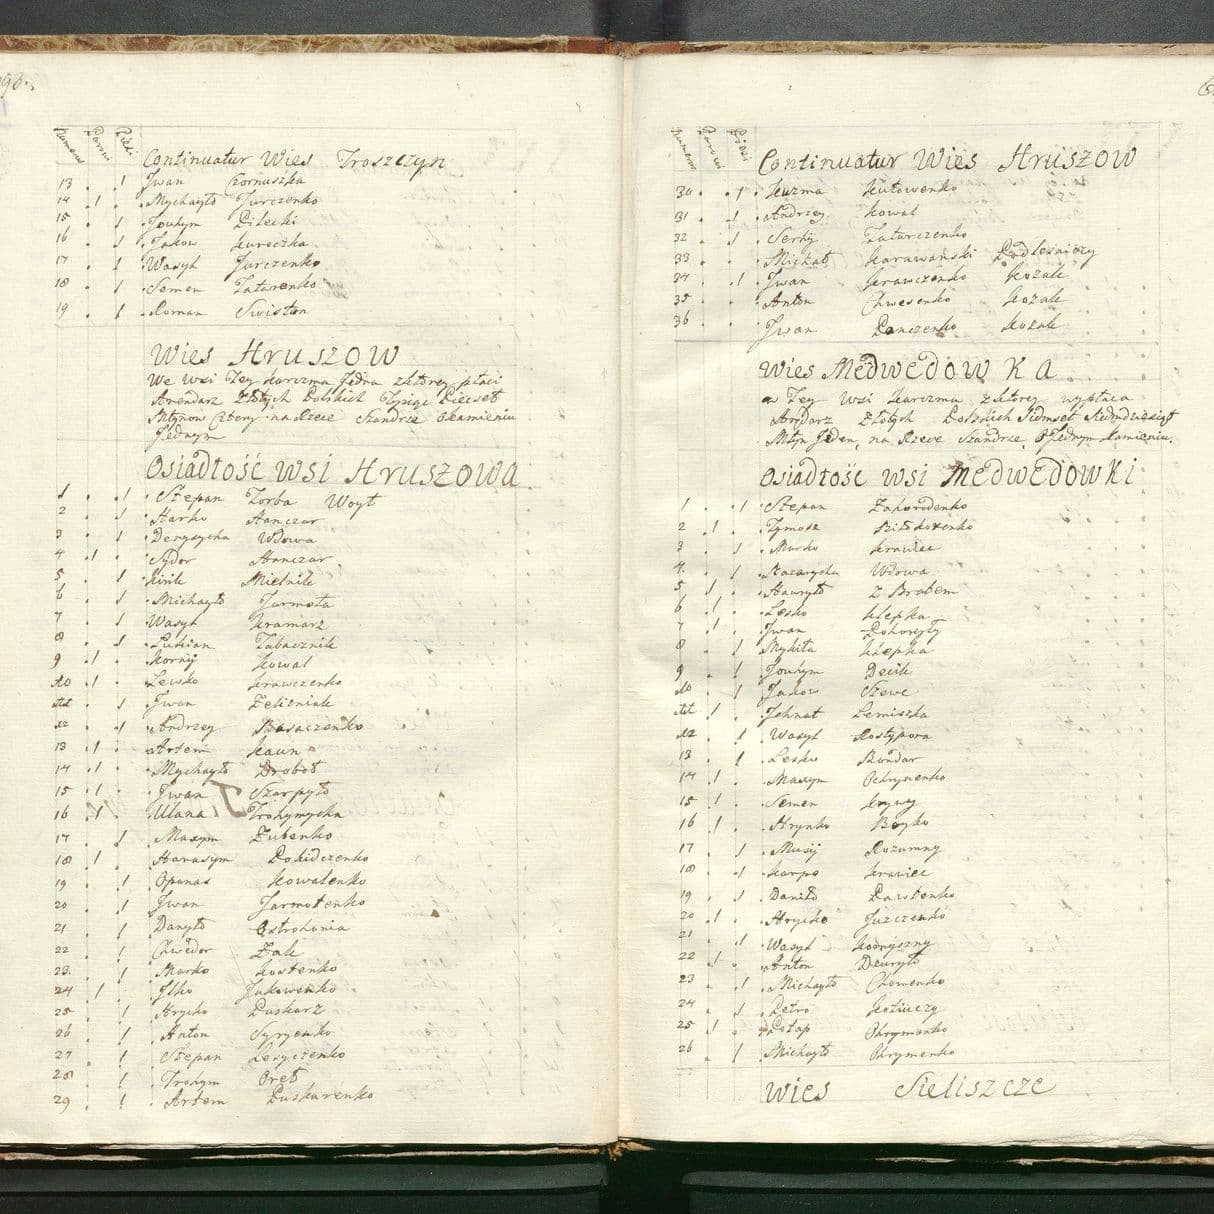 Numerus Parowi Piesi
Continuatur Wies Troszczyn
13 Jwan Czornuszka
14 Mychayło Jurczenko
15 Joukym Bilecki
16 Jakow Kureczka
17 Wasyl Jurczenko
18 Semen Tatarenko
19 Roman Swiston
Wies Hruszow
We wsi Tey Karczma Jedna z ktorey płaci
Arendarz Złotych Polskich Tysiąc Piecset
Młynow Cztery na Rzece Szandrze o kamieniu
Jednym
Osiadłość wsi Hruszowa
1 Stepan Torba Woyt
2 Harko Hanczar
3 Denysycha Wdowa
4 Sydor Hanczar
5 Kirik Mielnik
6 Michayło Jarmoła
7 Wasyl Kramarz
8 Lukian Tabacznik
9 Kornij Kowal
10 Lewko Krawczenko
11 Jwan Zelizniak
12 Andrzey Basaczenko
13 Artem Kaun
14 Mychayło Drobot
15 Jwan Szarpyło
16 Ulana Trohymycha
17 Maxym Zubenko
18 Harasym Dokidczenko
19 Opanas Kowalenko
20 Jwan Jarmolenko
21 Danyło Ostrohonia
22 Chwedor Zak
23 Marko Kostenko
24 Jlko Jukowenko
25 Hrycko Puskarz
26 Anton Syryenko
27 Stepan Lesyczenko
28 Trohym Oreł
29 Artem Puskarenko
Numerus Parowi Piesi
Continuatur Wies Hruszow
30 Kuzma Kutowenko
31 Andrzey Kowal
32 Serhij Tatarczenko
33 Michał Karawański Podlesniczy
34 Jwan Krawczenko Kozak
35 Anton Chwesenko Kozak
36 Jwan Panczenko Kozak
Wies Medwedowka
w Tey wsi Karczma z ktorey wypłaca
Arędarz Złotych Polskich Siedmset Siedmdziesiąt
Młyn Jeden, na Rzece Szandrze o Jednym kamieniu
Osiadłość wsi Medwedowki
1 Stepan Zahorodenko
2 Tymosz
3 Marko Krawiec
4 Nazarycha Wdowa
5 Hawryło z Bratem
6 Lesko Klepka
7 Jwan
8 Mykita Klepka
9 Joukym Decik
10 Jakow Szewc
11 Jehnat Lemiszka
12 Wasyl Rostypora
13 Lesko Bondar
14 Maxym Ochrymenko
15 Semen Krywy
16 Hrynko Boyko
17 Musij Rozumny
18 Karpo Krawiec
19 Daniło Pawlenko
20 Hrycko Juzczenko
21 Wasyl
22 Anton Dzuryło
23 Michayło Chomenko
24 Petro
25 Ostap Ohrymenko
26 Michayło Ohrymenko
Wies Sieliszcze